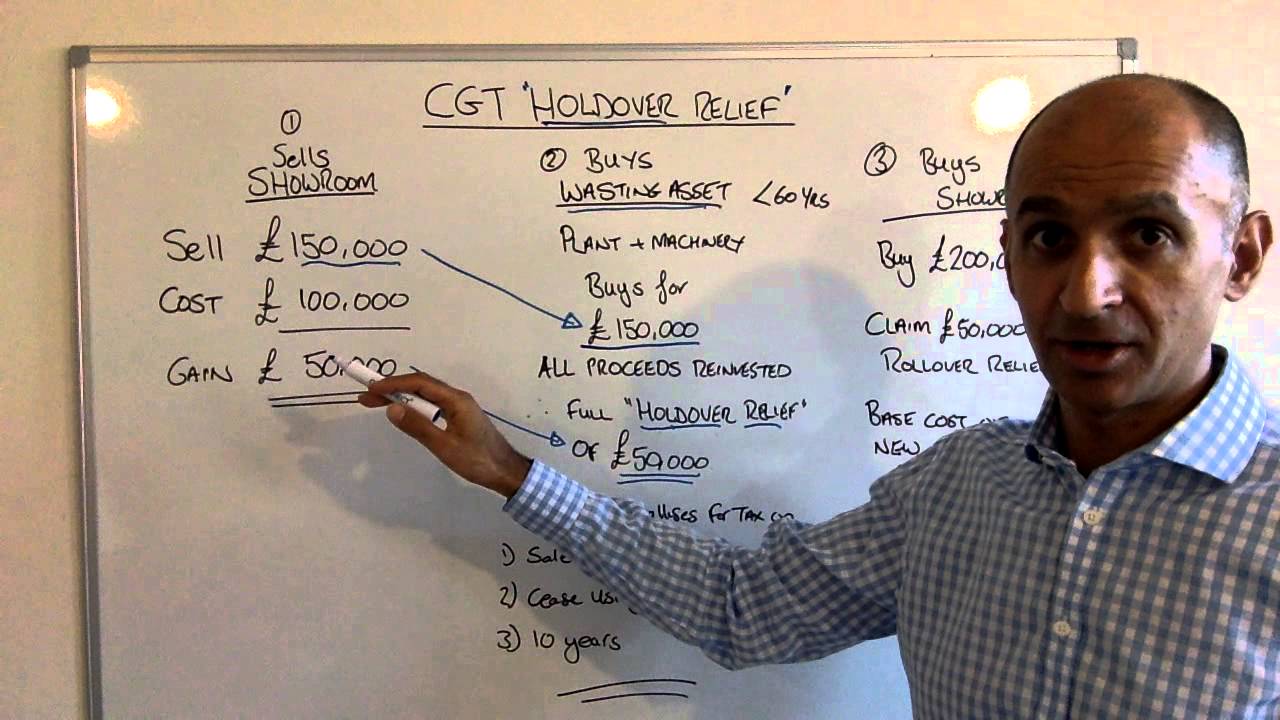 CGT 'HOLDOVER RELIEF'
①
Sells
SHOWROOM
Sell £150,000
COST £ 100,000
GAIN £ 50,000
② BUYS
WASTING ASSET <60 YRS
PLANT + MACHINERY
Buys for
£150,000
ALL PROCEEDS REINVESTED
FULL "HOLDOVER RELIEF"
OF £50,000
for TAX on
1) Sale
2) Cease
3) 10 years
③ Buys
Buy
CLAIM £50,000
ROLLOVER
BASE COST
NEW